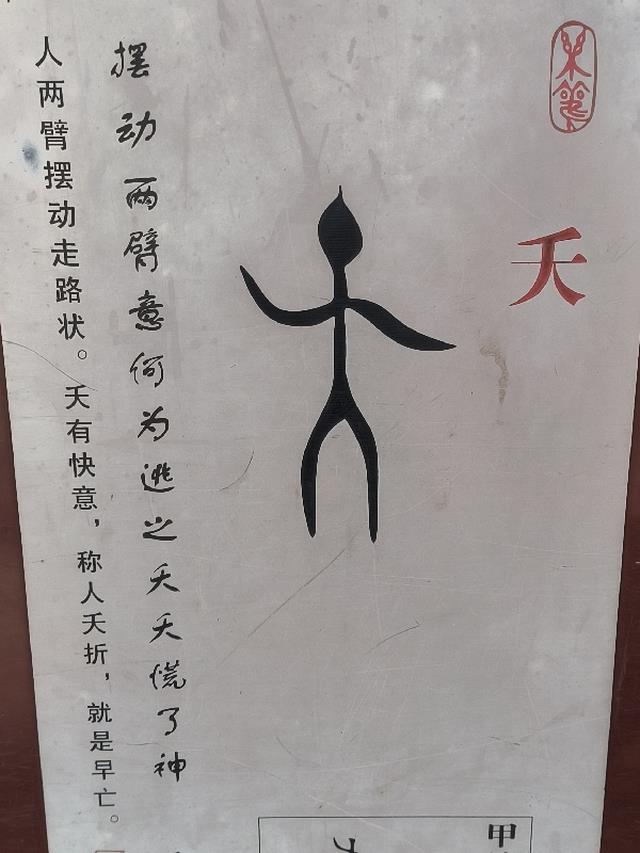 夭
摆动两臂意何为逃之夭夭慌了神
人两臂摆动走路状。夭有快意，称人夭折，就是早亡。
甲